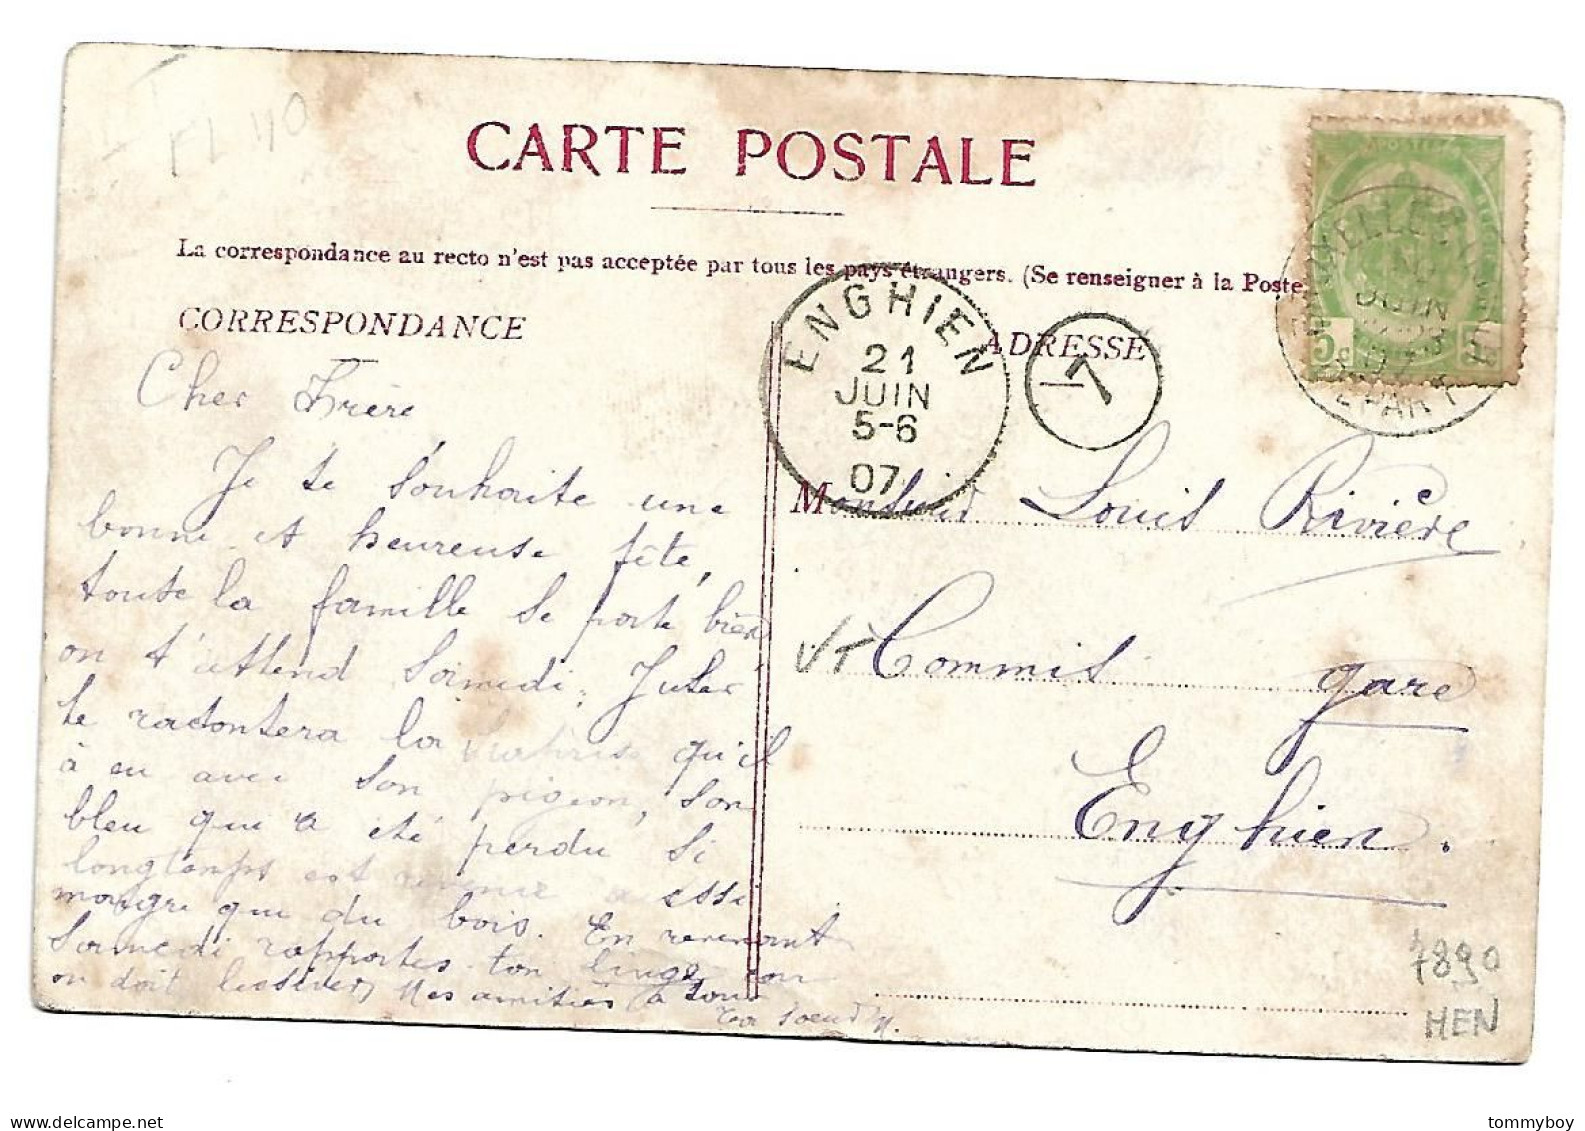 EL 40
CARTE POSTALE
La correspondance au recto n'est pas acceptée par tous les pays étrangers. (Se renseigner à la Poste
CORRESPONDANCE
ADRESSE
ENGHIEN
21
JUIN
5-6
07
7
JUIN
07
DEPART
5c
Cher Frère
Je te souhaite une
bonne et heureuse fête,
toute la famille se porte bien
on t'attend Samedi.
te racontera la qu'il
à eu avec son pigeon, son
bleu qui a été perdu si
longtemps est
maigre que du bois. En revenant
Samedi rapportes ton linge car
on doit lessiver, Mes amitiés à tous
Ta soeur M.
Monsieur Louis Rivière
Commis gare
Enghien.
7890
HEN
tommyboy